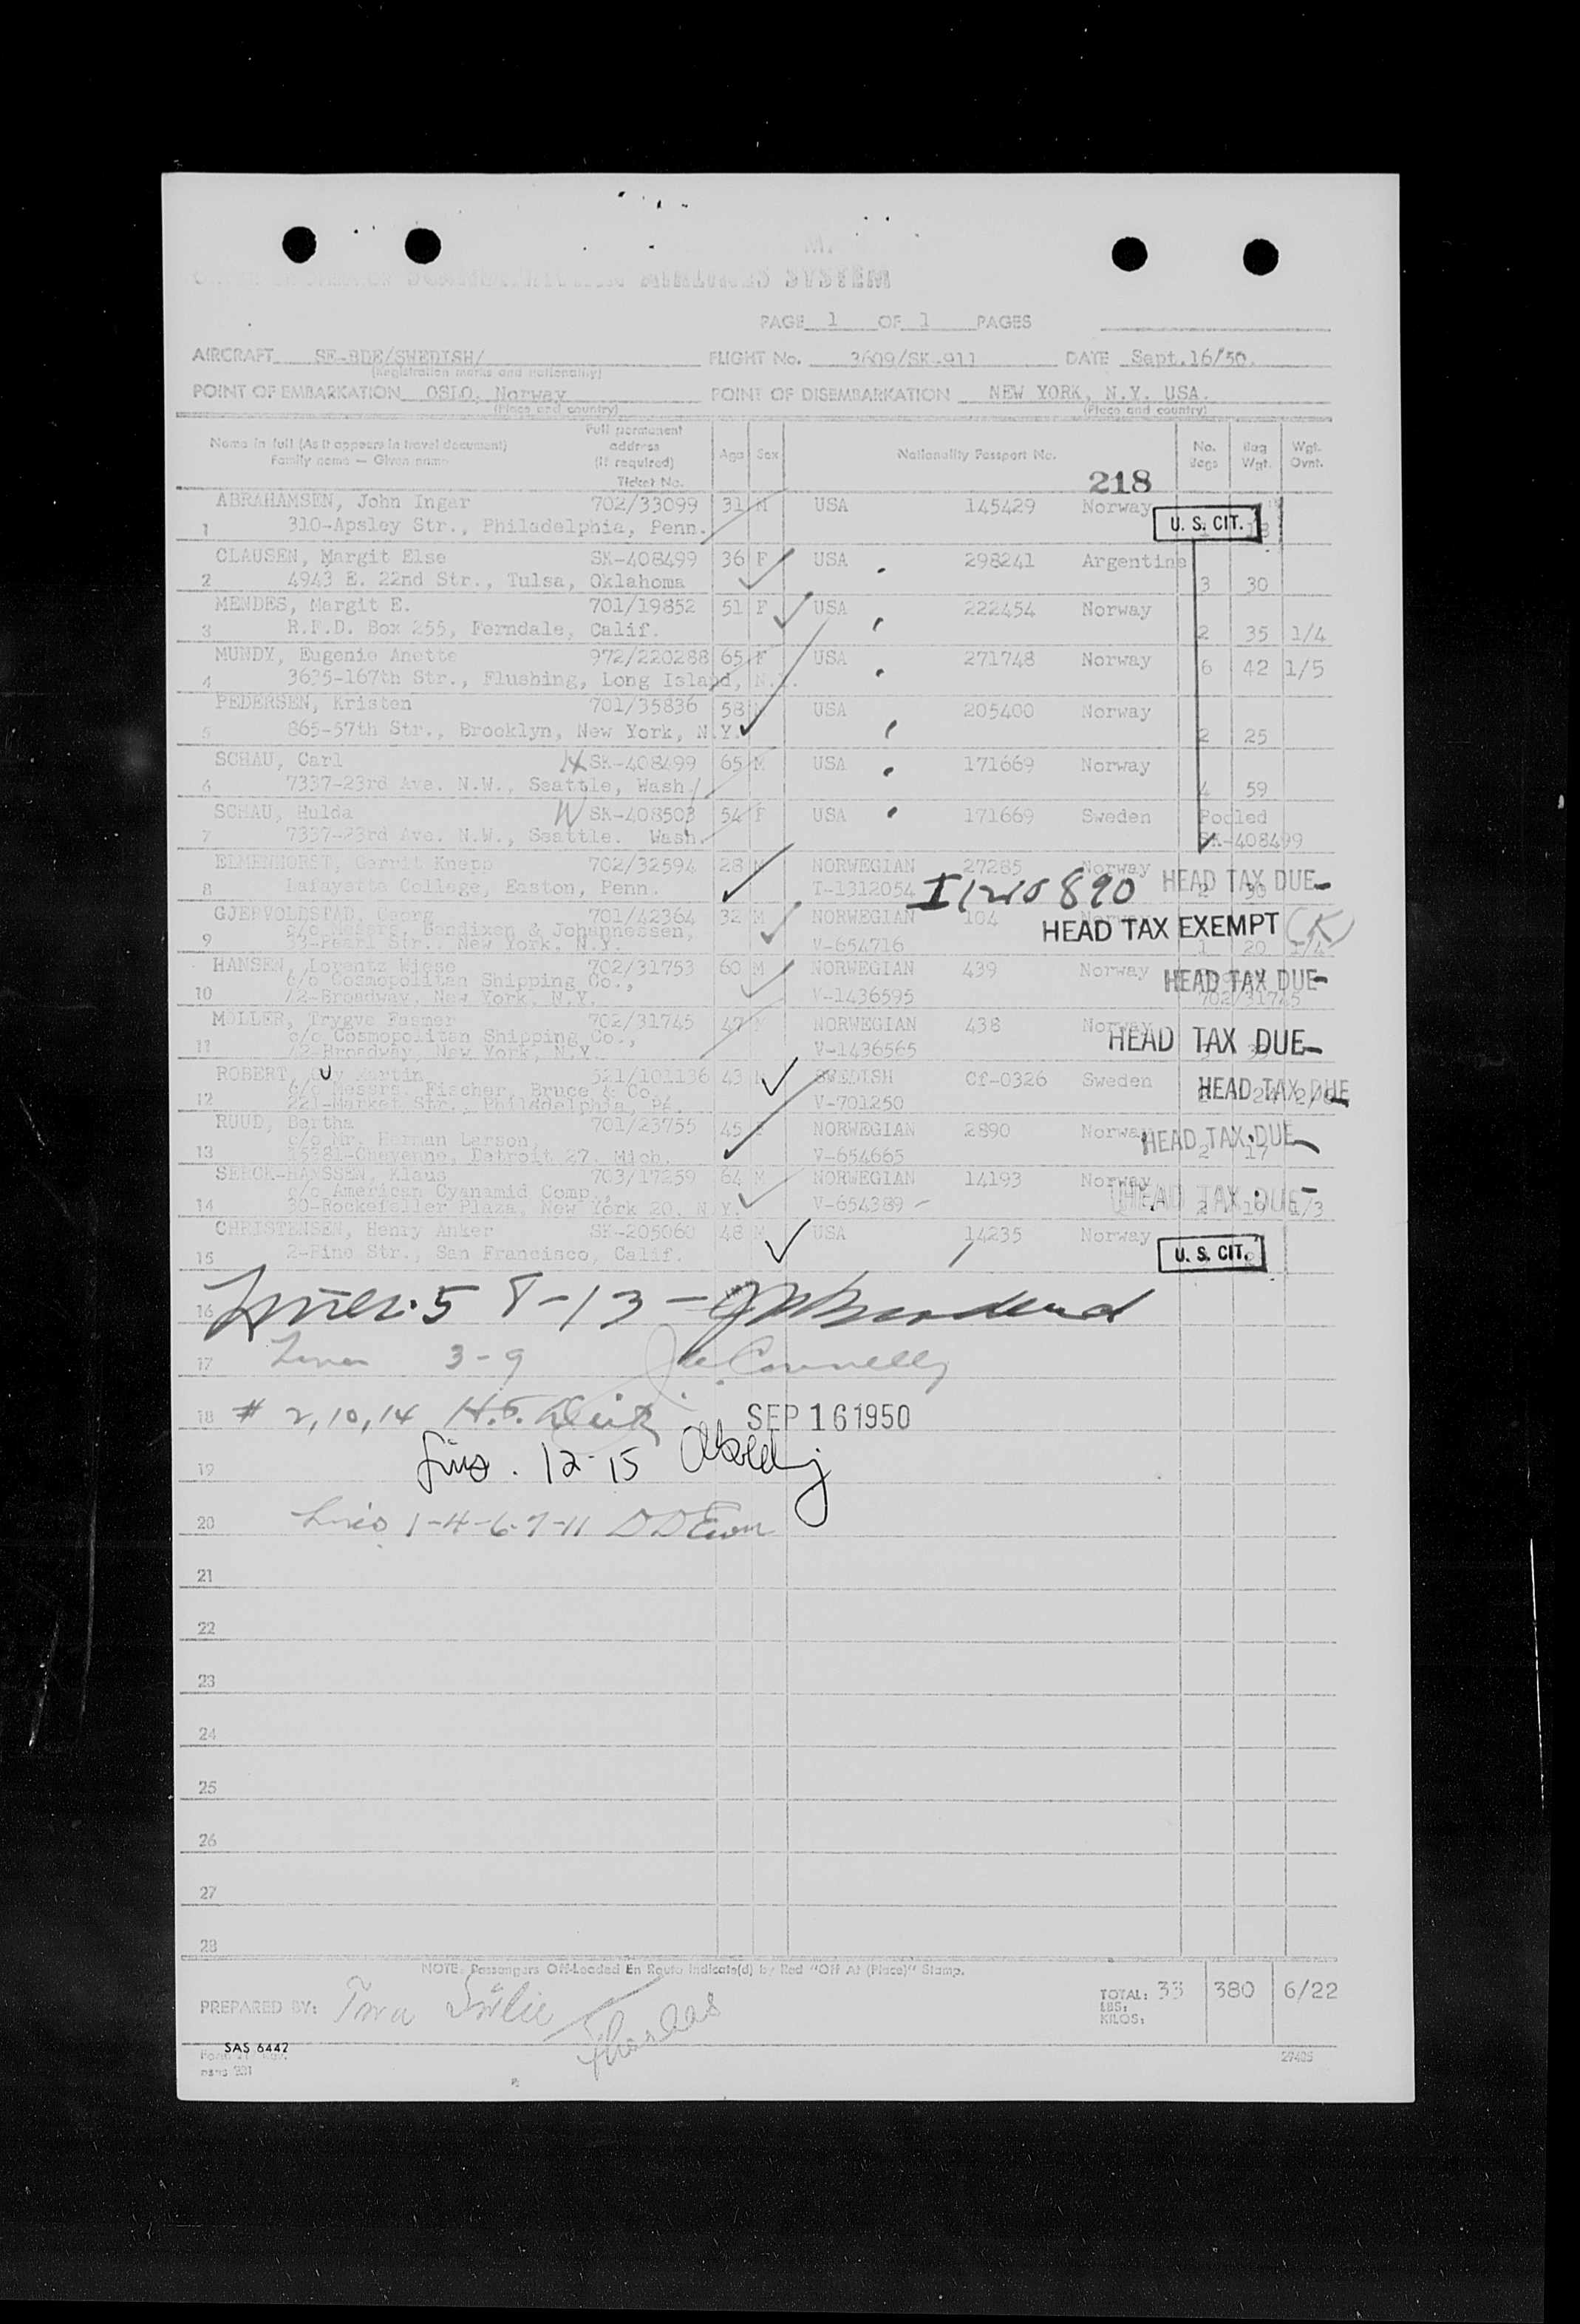 AIRLINES SYSTEM
PAGE 1 OF 1 PAGES
AIRCRAFT SE-BDE/SWEDISH/ FLIGHT No. 3609/SK-911 DATE Sept.16/50.
(Registration marks and nationality)
POINT OF EMBARKATION OSLO, Norway POINT OF DISEMBARKATION NEW YORK, N.Y. USA.
(Place and country) (Place and country)
Name in full (As it appears in travel document) Family name — Given name Full permanent address (if required) Ticket No. Age Sex Nationality Passport No. No. Bags Bag Wgt. Wgt. Ovnt.
218
ABRAHAMSEN, John Ingar 702/33099 31 M USA 145429 Norway
1 310-Apsley Str., Philadelphia, Penn. U. S. CIT.
CLAUSEN, Margit Else SK-408499 36 F USA 298241 Argentine
2 4943 E. 22nd Str., Tulsa, Oklahoma 3 30
MENDES, Margit E. 701/19852 51 F USA 222454 Norway
3 R.F.D. Box 255, Ferndale, Calif. 2 35 1/4
MUNDY, Eugenie Anette 972/220288 65 F USA 271748 Norway
4 3635-167th Str., Flushing, Long Island, N.Y. 6 42 1/5
PEDERSEN, Kristen 701/35836 58 USA 205400 Norway
5 865-57th Str., Brooklyn, New York, N.Y. 2 25
SCHAU, Carl SK-408499 65 M USA 171669 Norway
6 7337-23rd Ave. N.W., Seattle, Wash. 4 59
SCHAU, Hulda W SK-408503 54 F USA 171669 Sweden Pooled
7 7337-23rd Ave. N.W., Seattle. Wash. SK-408499
ELMENHORST, Gerrit Knepp 702/32594 28 M NORWEGIAN 27285 Norway
8 Lafayette College, Easton, Penn. I-1312054 I1240890 HEAD TAX DUE 2 30
GJERVOLDSTAD, Georg 701/42364 32 M NORWEGIAN 104 Norway
c/o Messrs. Bendixen & Johannessen, HEAD TAX EXEMPT (K)
9 33-Pearl Str., New York, N.Y. V-654716 1 20 1/4
HANSEN, Lorentz Wiese 702/31753 60 M NORWEGIAN 439 Norway
c/o Cosmopolitan Shipping Co., HEAD TAX DUE
10 72-Broadway, New York, N.Y. V-1436595 702/31745
MÖLLER, Trygve Fasmer 702/31745 47 M NORWEGIAN 438 Norway
c/o Cosmopolitan Shipping Co., HEAD TAX DUE
11 72-Broadway, New York, N.Y. V-1436565
ROBERT, Guy Martin 521/101136 43 M SWEDISH Cf-0326 Sweden
c/o Messrs. Fischer, Bruce & Co. HEAD TAX DUE
12 221-Market Str., Philadelphia, Pa. V-701250
RUUD, Bertha 701/23755 45 F NORWEGIAN 2890 Norway
c/o Mr. Herman Larson, HEAD TAX DUE
13 15381-Cheyenne, Detroit 27, Mich. V-654665 2 17
SERCK-HANSSEN, Klaus 703/17259 64 M NORWEGIAN 14193 Norway
c/o American Cyanamid Comp., HEAD TAX DUE
14 30-Rockefeller Plaza, New York 20, N.Y. V-654389 2 19 1/3
CHRISTENSEN, Henry Anker SK-205060 48 M USA 14235 Norway
15 2-Pine Str., San Francisco, Calif. U. S. CIT.
16 Lines. 5 8-13-
17 Lines 3-9 J Connelly
18 # 2,10,14 SEP 16 1950
19 Lins. 12-15
20 Lines 1-4-6-7-11
21
22
23
24
25
26
27
28
NOTE: Passengers Off-Loaded En Route Indicate(d) by Red "Off At (Place)" Stamp.
PREPARED BY: TOTAL: 33 380 6/22
LBS:
KILOS:
SAS 6442
27405